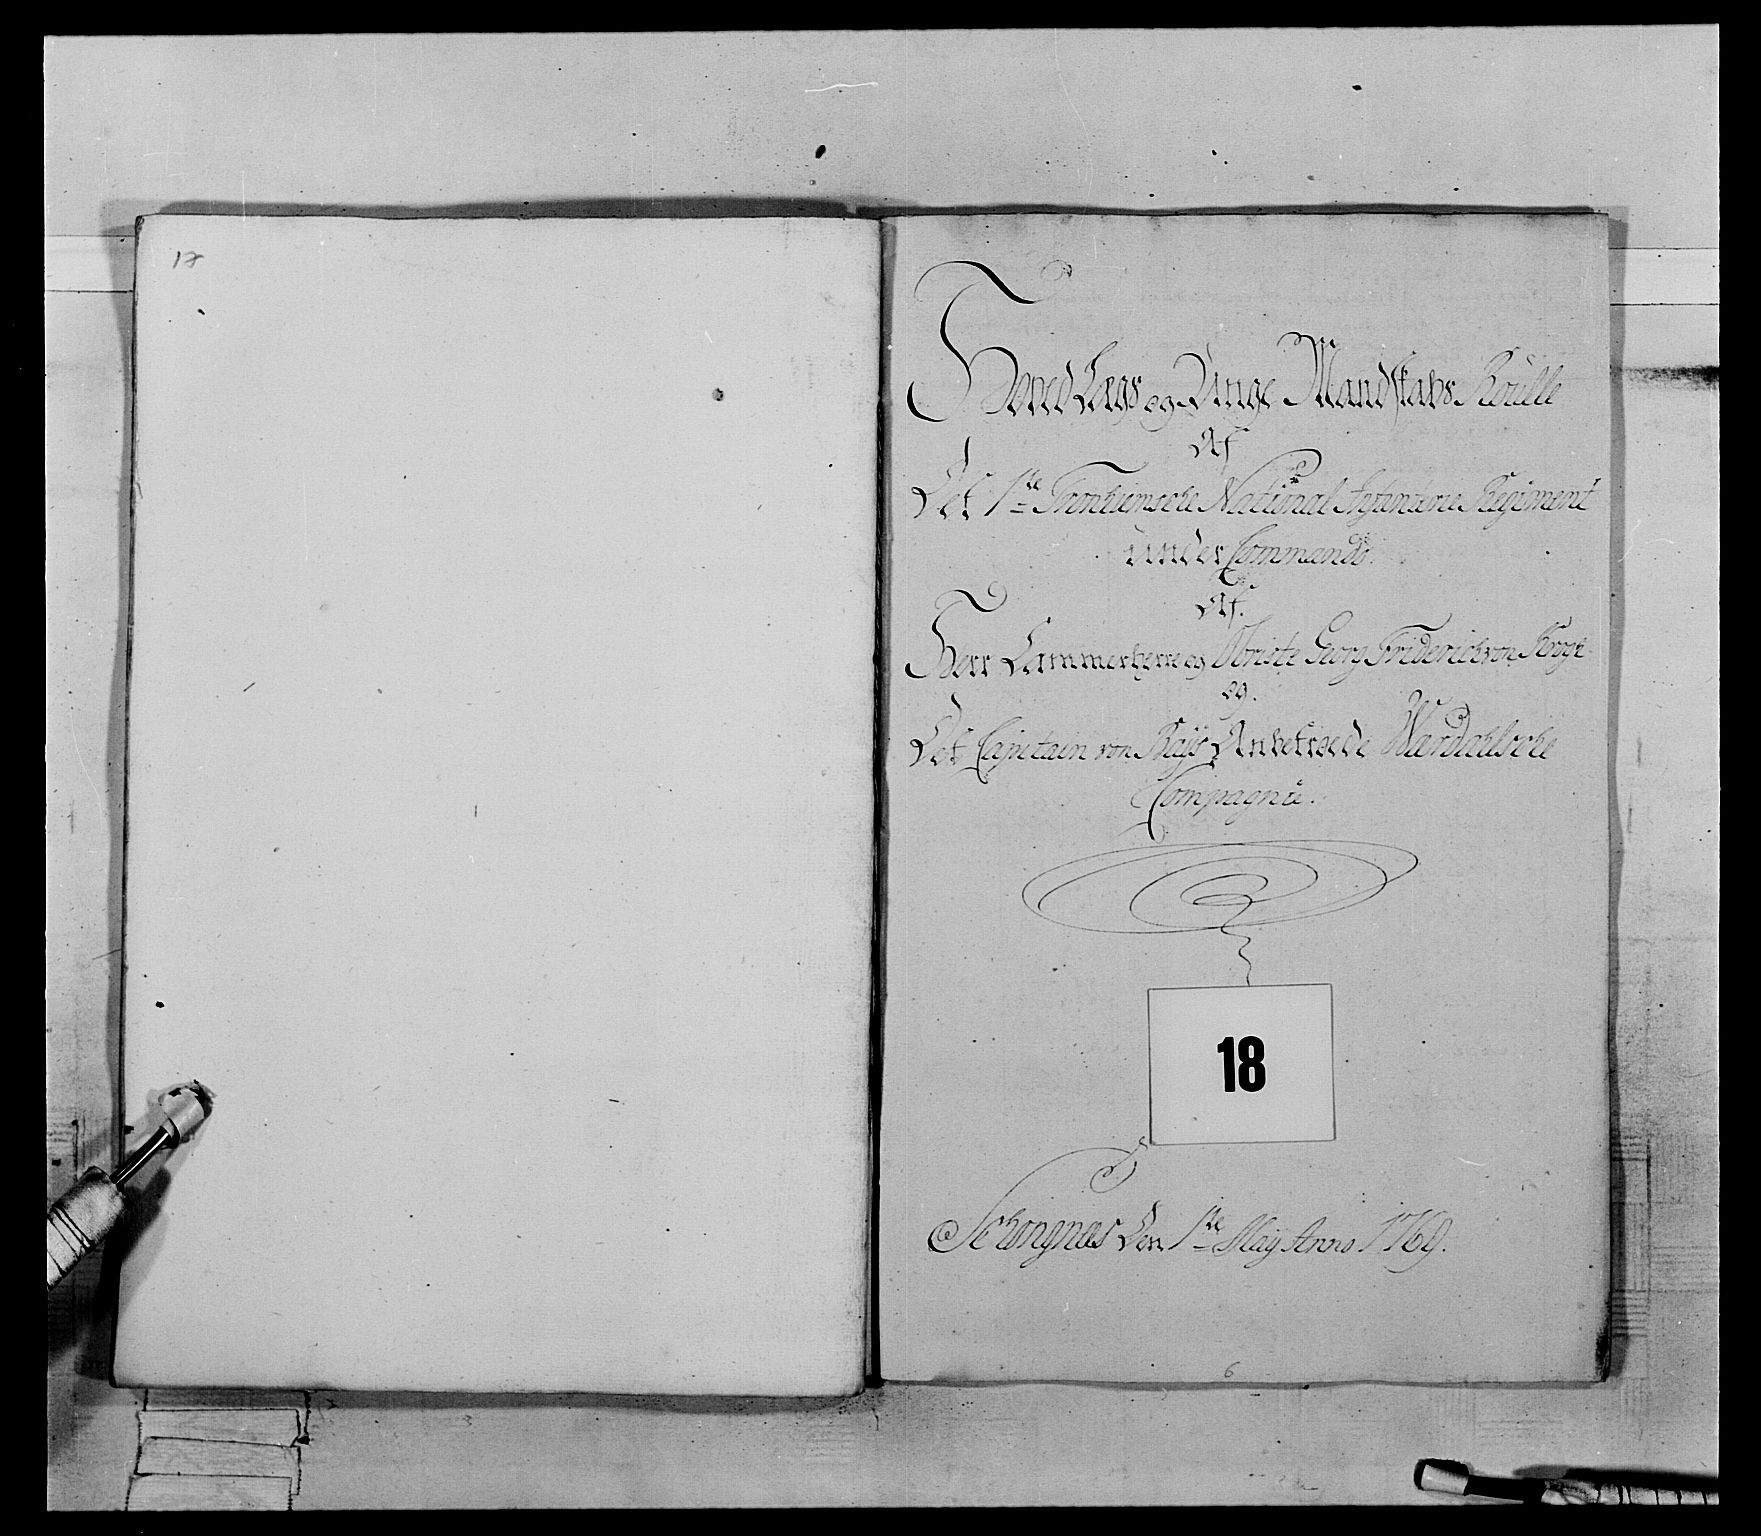 17
Hoved Lægs og Unge Mandskabs Roulle
Af
Det 1ste Tronhiemsche National Infanterie Regiment
under Commando.
Af.
Herr Cammerherre og Obriste Georg Friderich von Krogh
og.
Det Capitain von Anbetroede Wærdahlsche
Compagnie.
18
Schongnæs Den 1te May Anno 1769.
6